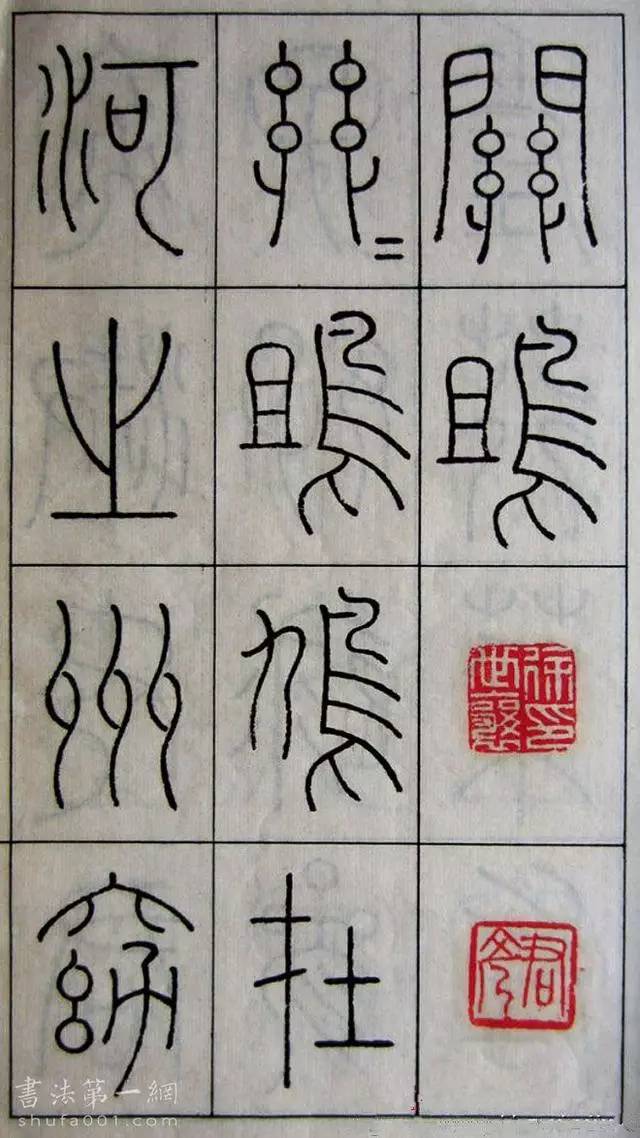 關鴡
鴡鳩在
河之州窈
書法第一網
shufa001.com